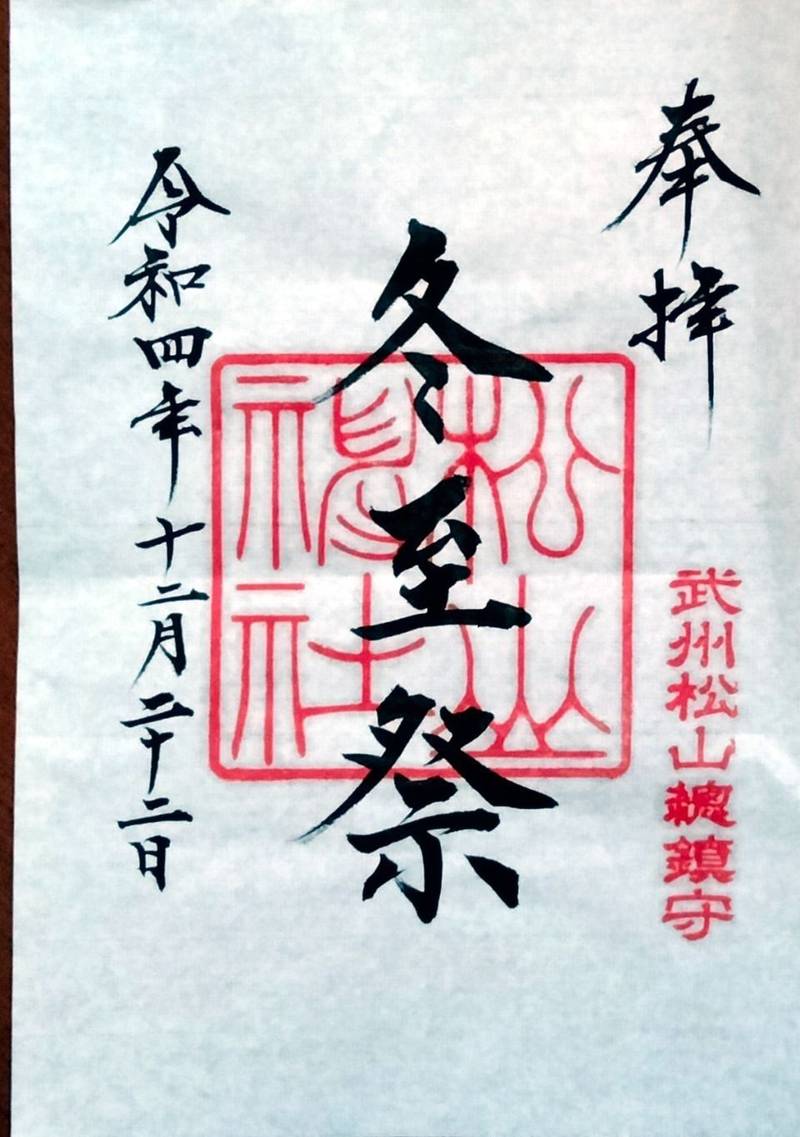 奉拝
武州松山總鎮守
冬至祭
松山
禝社
令和四年十二月二十二日